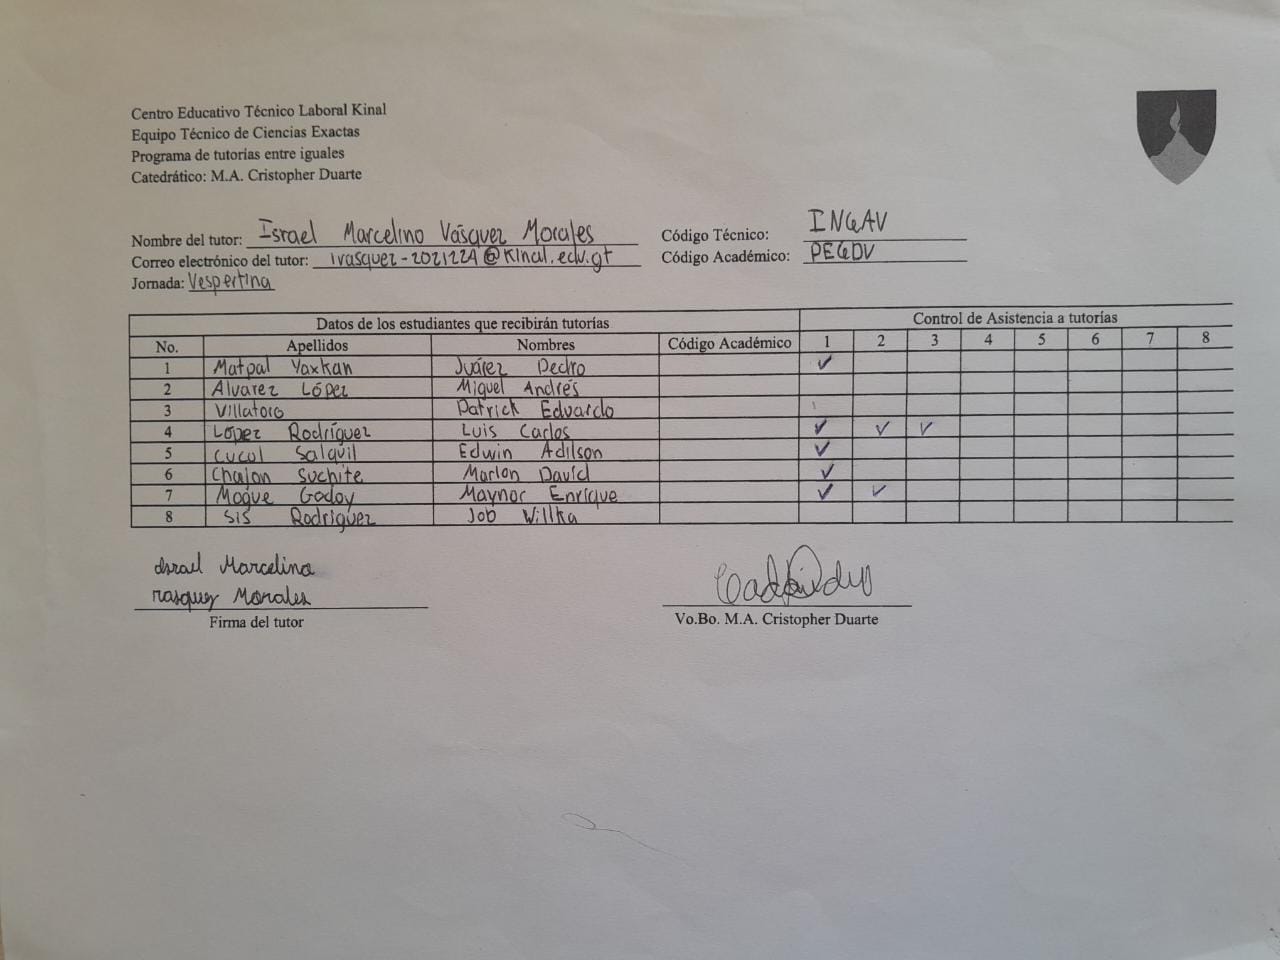 Centro Educativo Técnico Laboral Kinal
Equipo Técnico de Ciencias Exactas
Programa de tutorías entre iguales
Catedrático: M.A. Cristopher Duarte
Nombre del tutor: Israel Marcelino Vásquez Morales Código Técnico: IN6AV
Correo electrónico del tutor: ivasquez-2021224@kinal.edu.gt Código Académico: PE6DV
Jornada: Vespertina
Datos de los estudiantes que recibirán tutorías Control de Asistencia a tutorías
No. Apellidos Nombres Código Académico 1 2 3 4 5 6 7 8
1 Matpal Yaxkan Juárez Pedro ✓
2 Alvarez López Miguel Andrés
3 Villatoro Patrick Eduardo
4 López Rodríguez Luis Carlos ✓ ✓ ✓
5 Cucul Salquil Edwin Adilson ✓
6 Chajon Suchite Marlon David ✓
7 Moque Godoy Maynor Enrique ✓ ✓
8 Sis Rodriguez Job Willka
Israel Marcelino
Vasquez Morales
Firma del tutor Vo.Bo. M.A. Cristopher Duarte